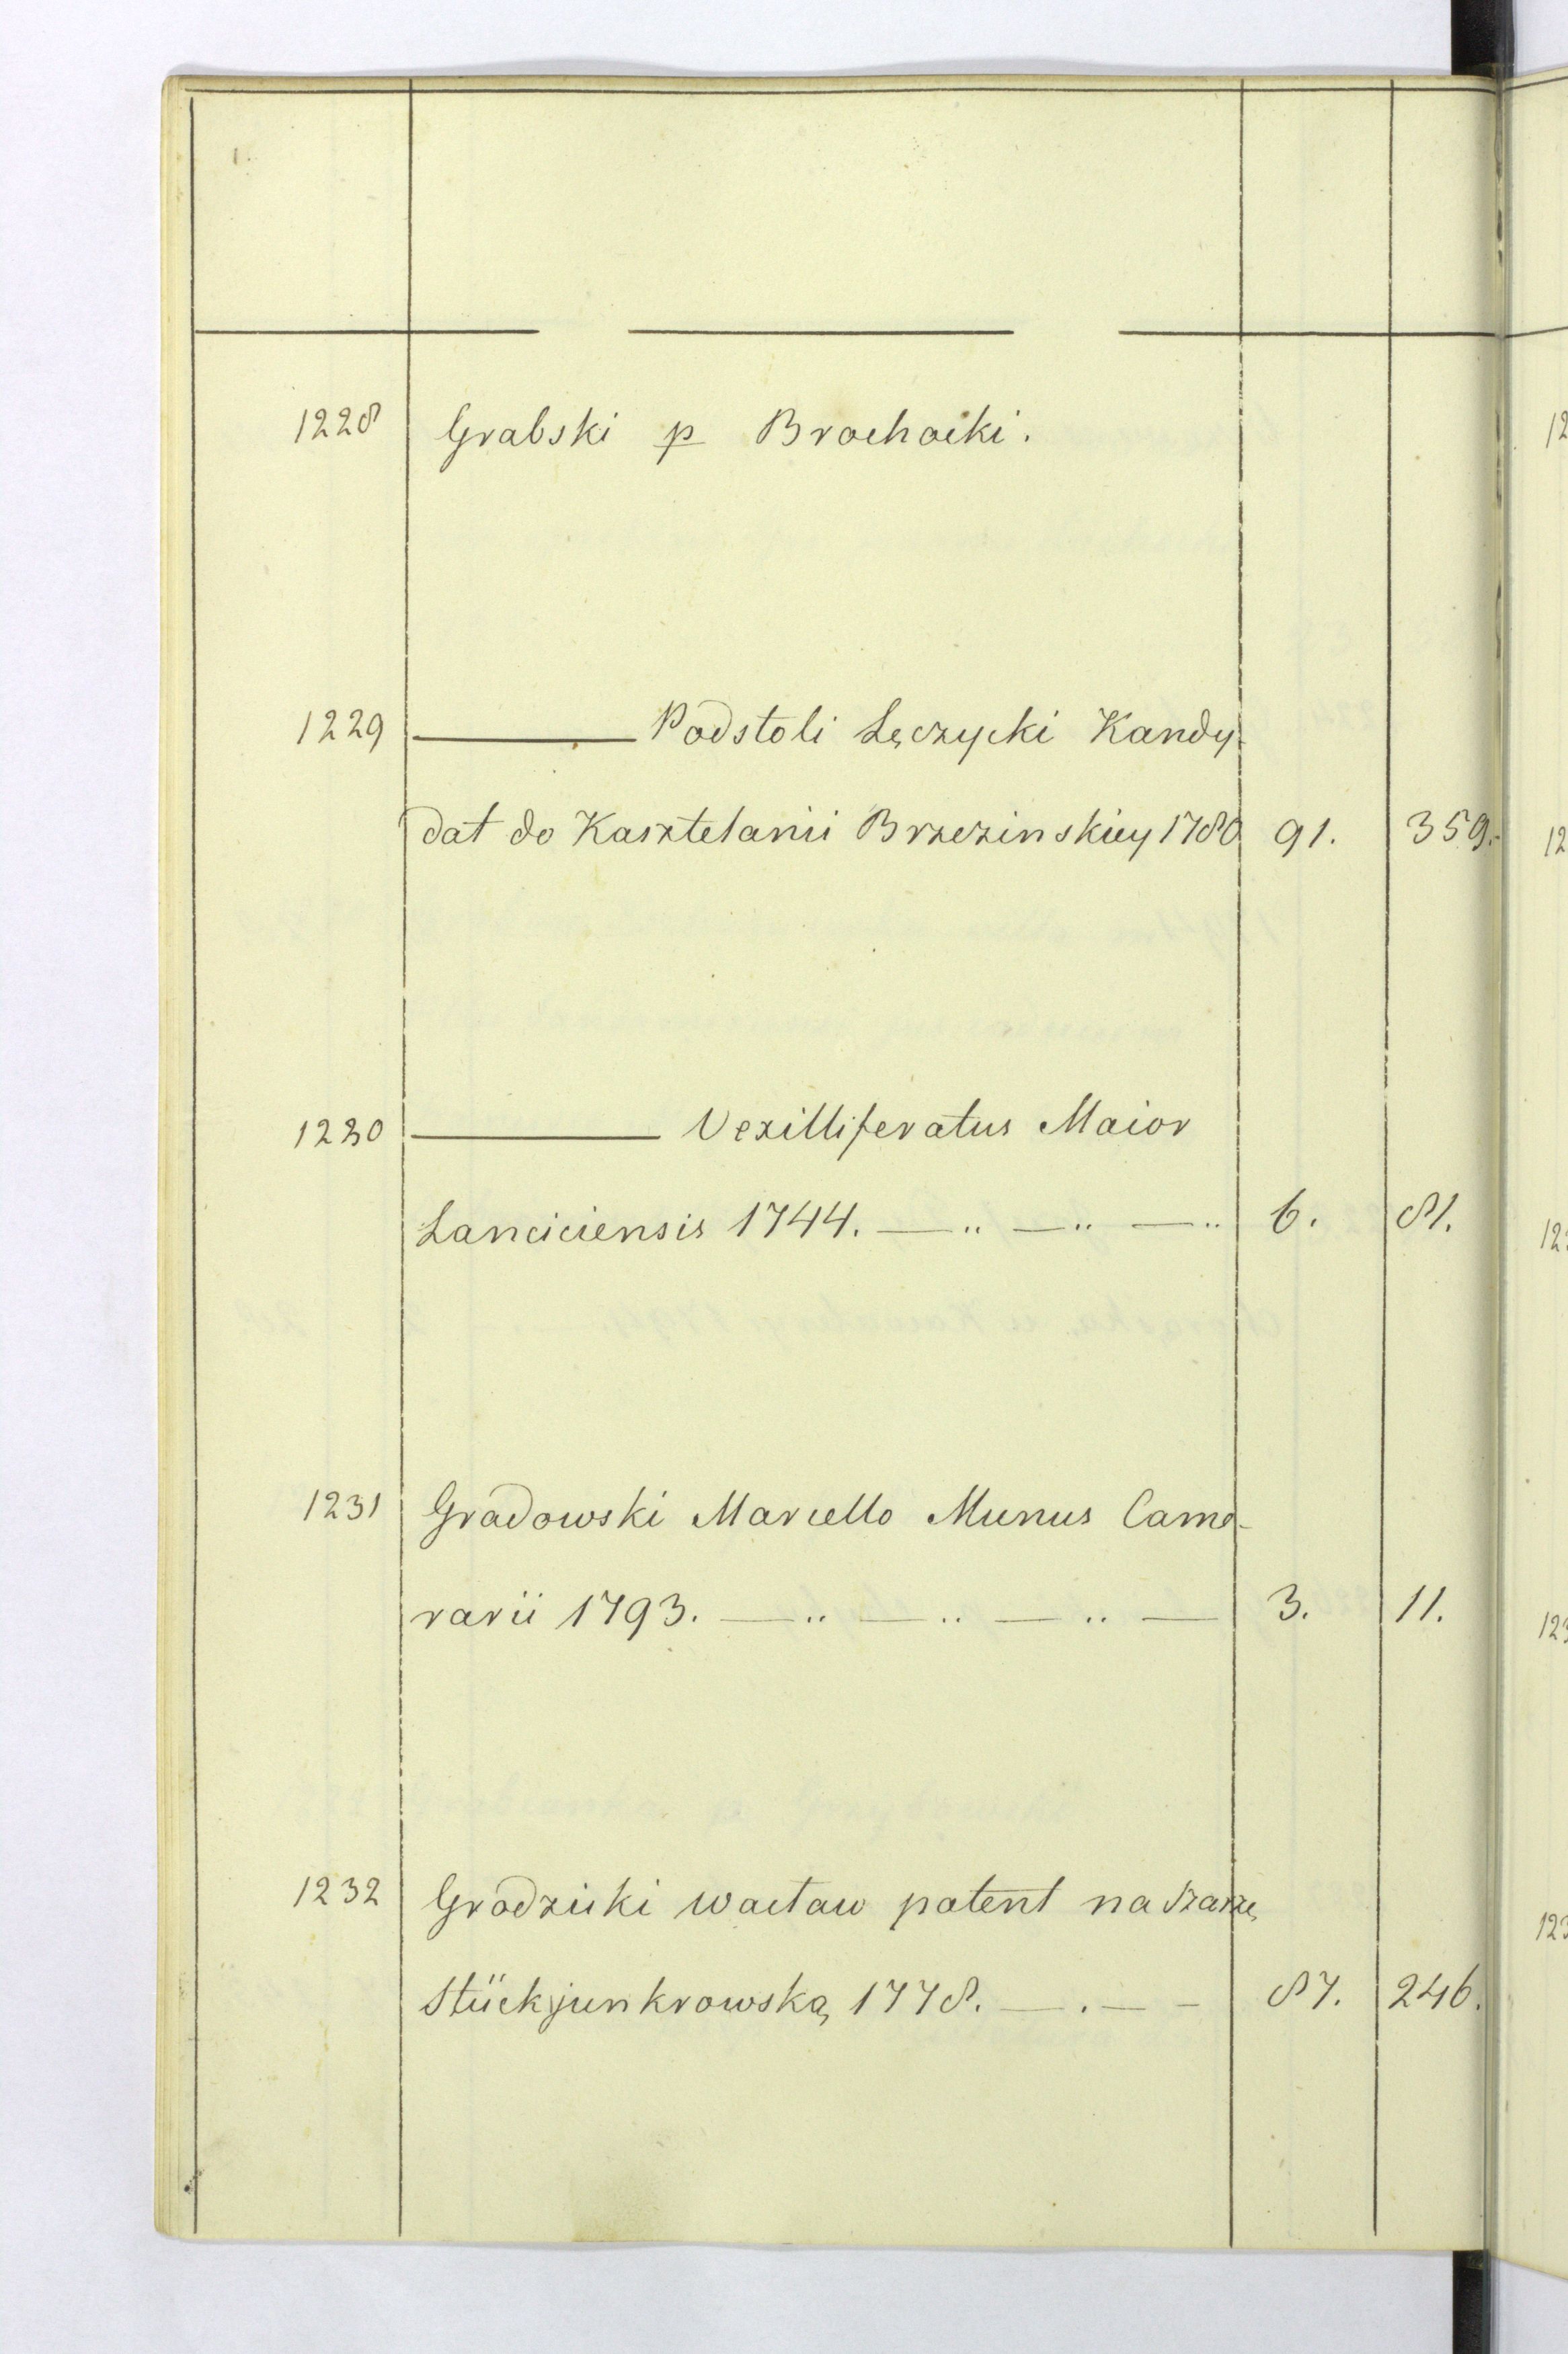 1228 Grabski p Brochocki.
1229 ——— Podstoli Lęczycki Kandy-
dat do Kasztelanii Brzezinskiey 1780 91. 359.
1230 ——— Vexilliferatus Maior
Lanciciensis 1744. —„ —„ —„ 6. 81.
1231 Gradowski Marcello Munus Came-
rarii 1793. —„ —„ —„ — 3. 11.
1232 Grodzicki Wacław patent na Szarżę
Stückjunkrowską 1778. — . — – 87. 246.